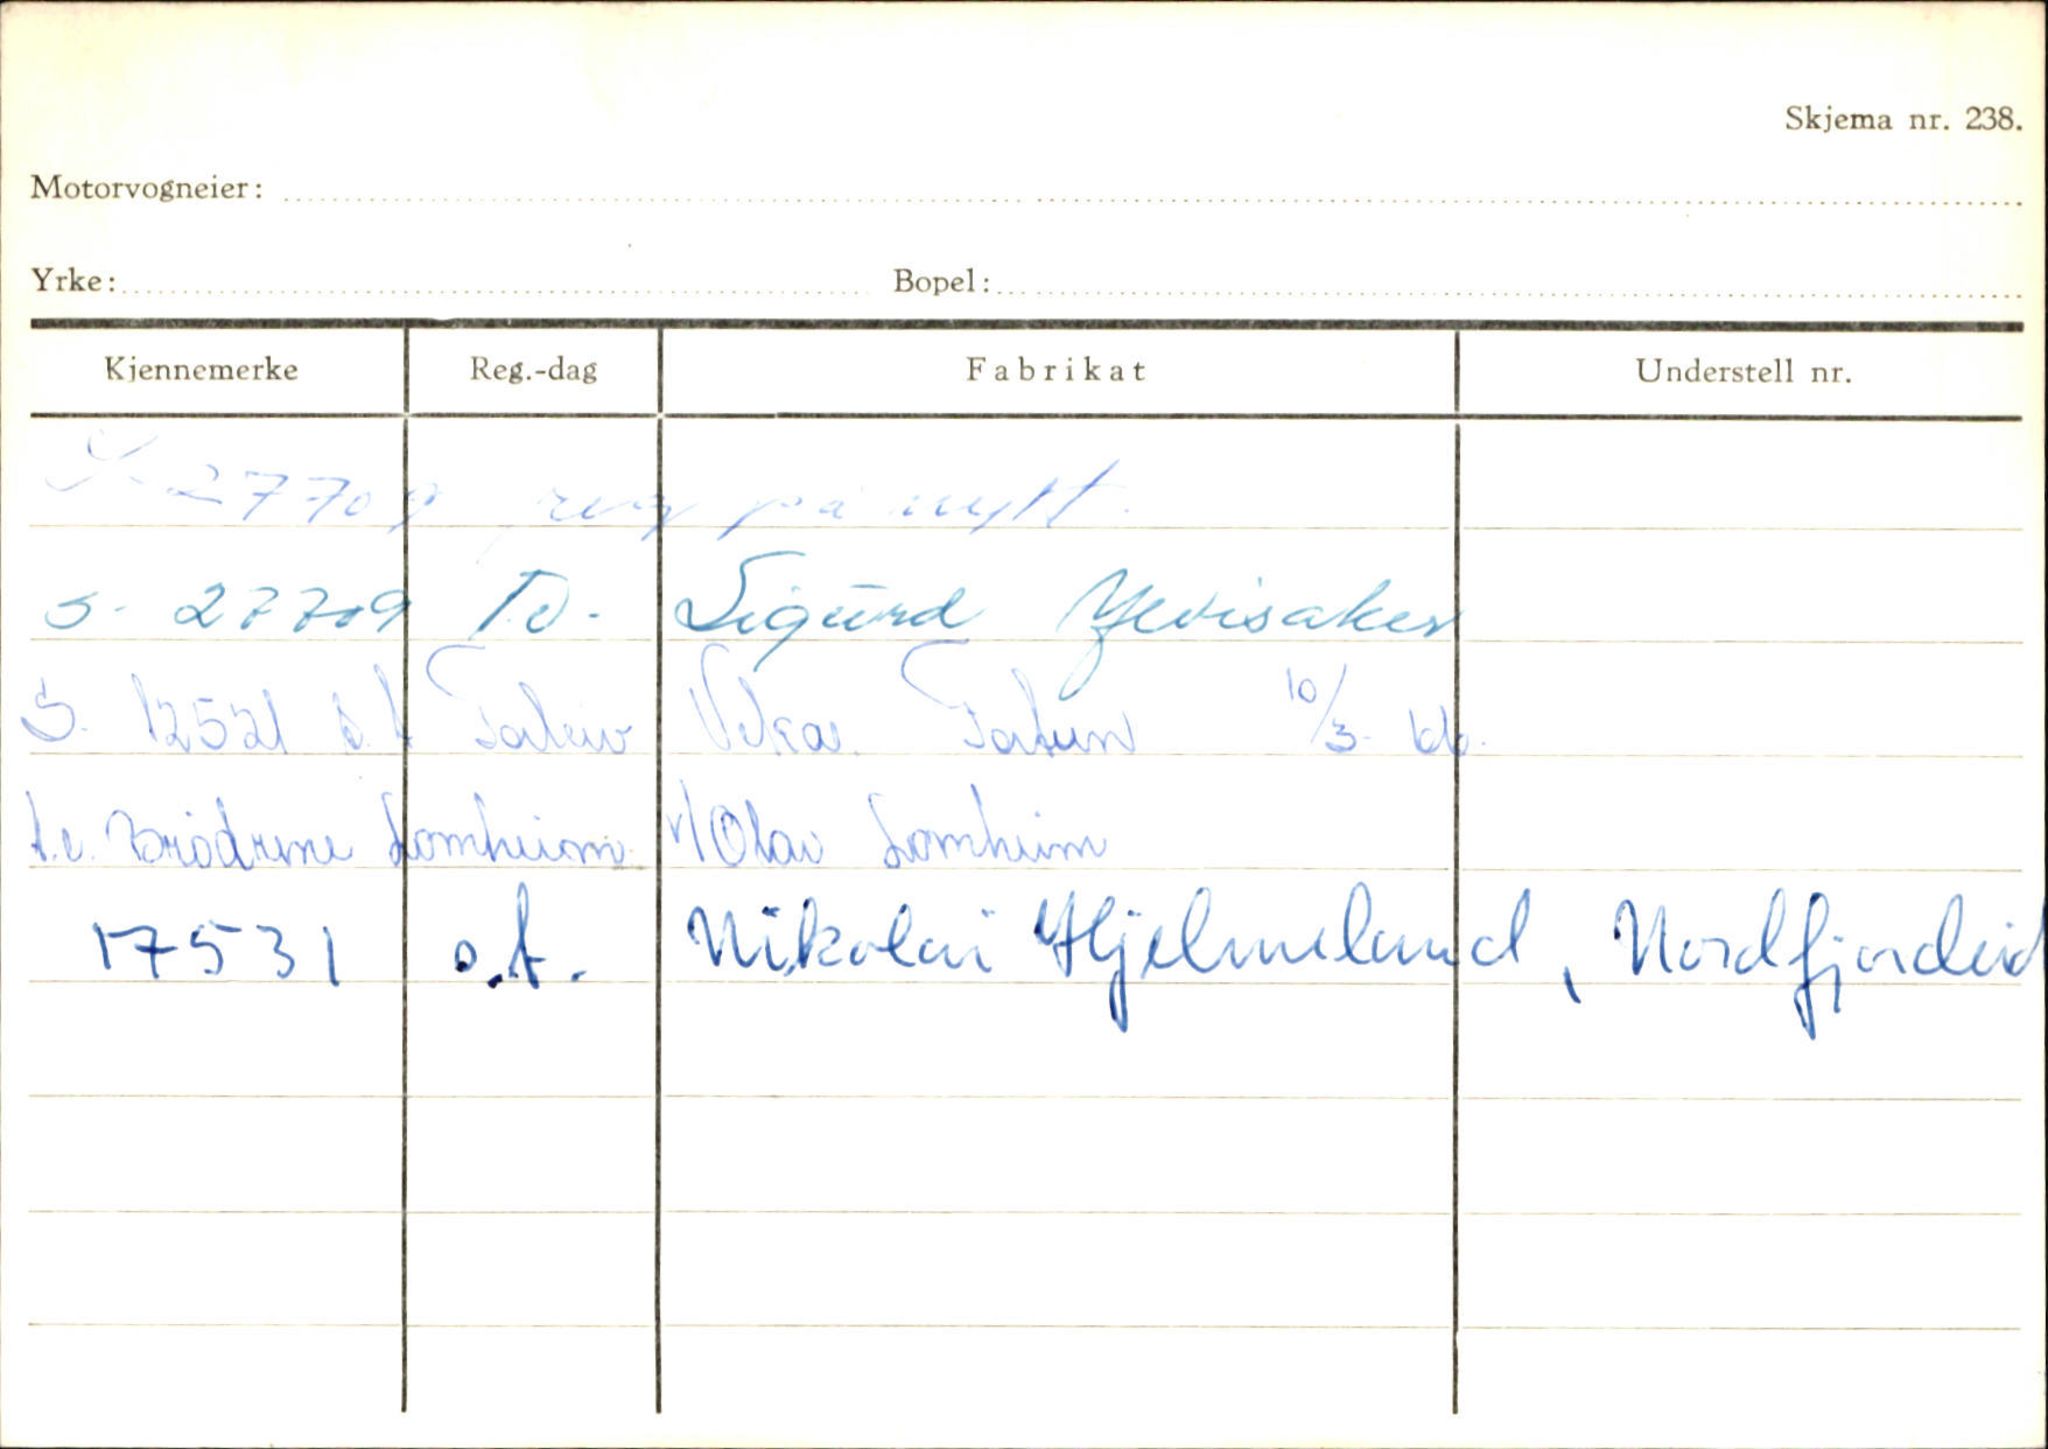 Skjema nr. 238.
Motorvogneier:
Yrke: Bopel:
Kjennemerke Reg.-dag Fabrikat Understell nr.
S-27709 reg på nytt.
S- 27709 T.v. Sigurd Ylvisaker
S. 12521 s.t. Torleiv Vikar Tortun 10/3-
t.v. Brödrene Lomheim v/Olav Lomheim
17531 o.t. Nikolai Hjelmeland, Nordfjordeid